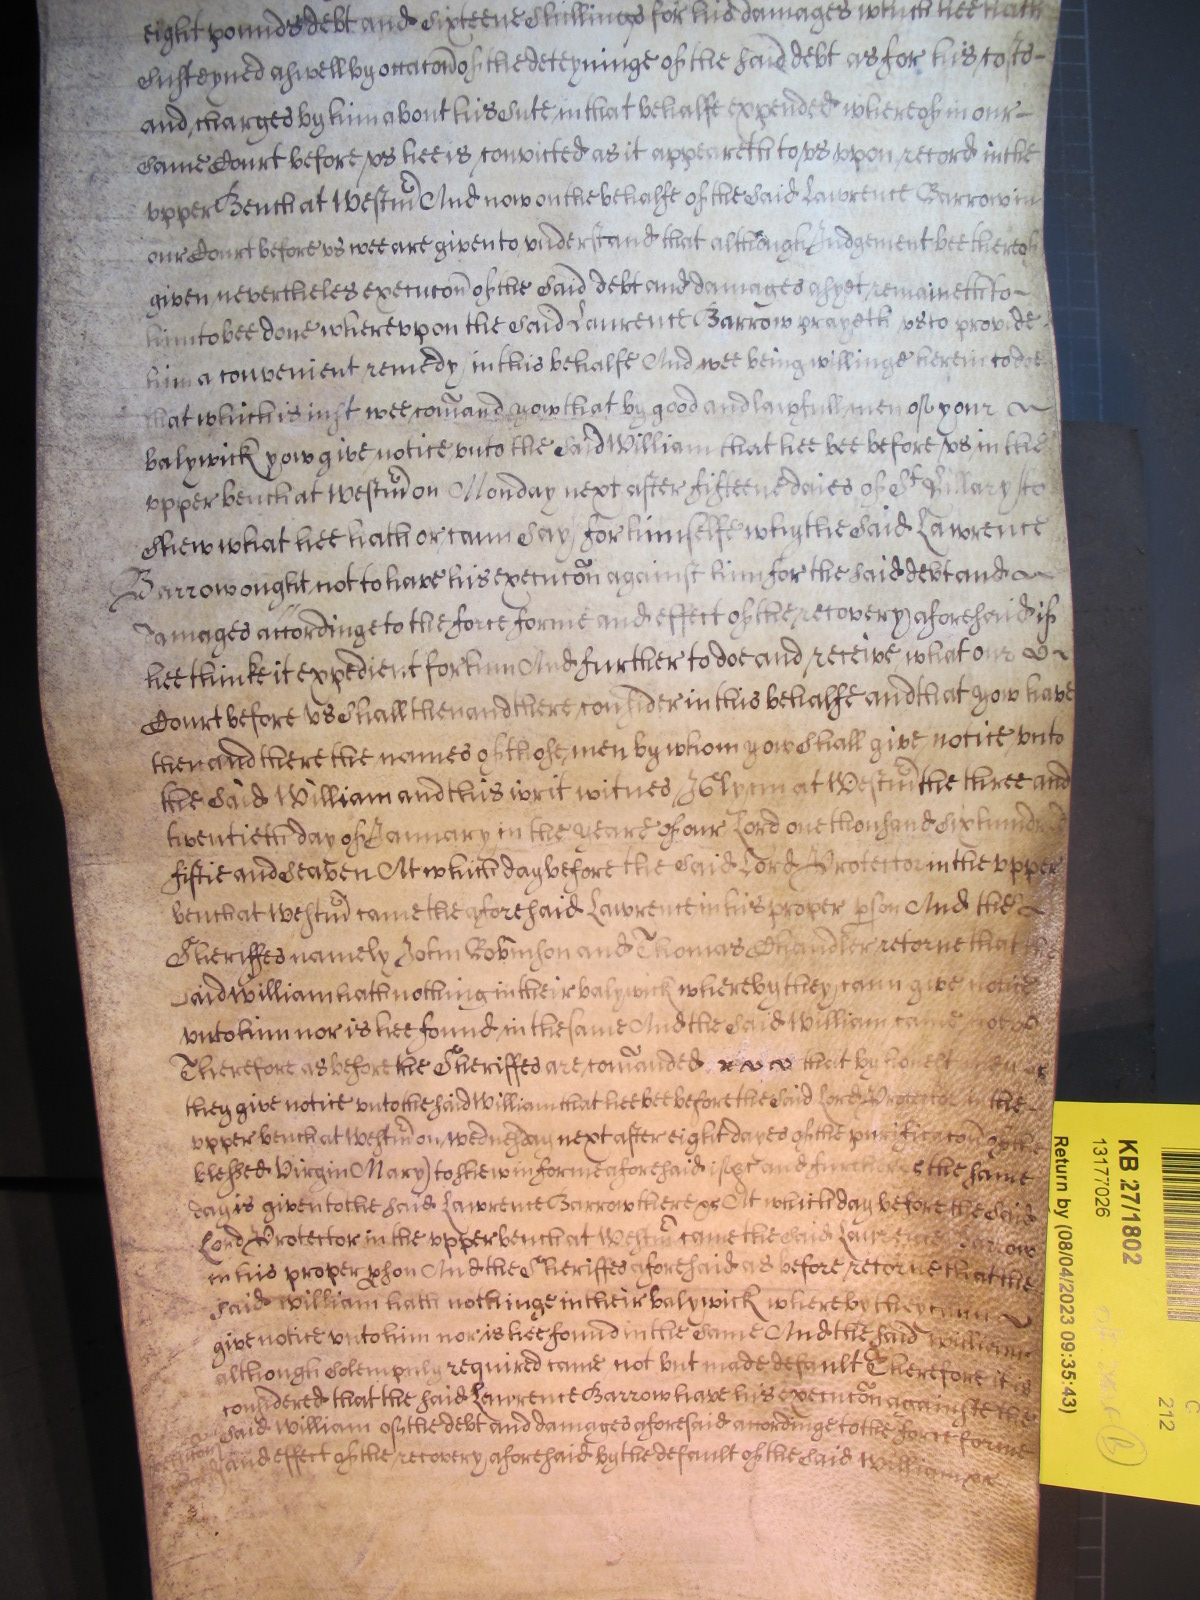 eight pounds debt and Sixteene Shillings for his damages which hee hath
Susteyned aswell by occacon of the deteyninge of the said debt as for his costs
and charges by him about his Sute in that behalfe expended whereof in our
same Court before us hee is convicted as it appeareth to us upon record in the
upper Bench at Westm And now on the behalfe of the Said Lawrence Barrow in
our Court before us wee are given to understand that although Judgement bee thereof
given nevertheles execucon of the Said debt and damages as yet remaineth to
him to bee done whereupon the Said Laurence Barrow prayeth us to provide
him a convenient remedy in this behalfe And wee being willinge herein to doe
that which is iust wee comand yow that by good and lawfull men of your
balywick yow give notice unto the Said William that hee bee before us in the
upper bench at Westm on Monday next after fifteene daies of St Hillary to
Shew what hee hath or cann Say for himselfe why the Said Lawrence
Barrow ought not to have his execucon against him for the Said debt and
damages accordinge to the force forme and effect of the recovery aforesaid if
hee thinke it expedient for him And further to doe and receive what our
Court before us Shall then and there consider in this behalfe and that yow have
then and there the names of those men by whom yow Shall give notice unto
the Said William and this writ witnes J Glynn at Westm the three and
twentieth day of January in the yeare of our Lord one thousand Six hundred
fiftie and Seaven At which day before the Said Lord Protector in the upper
bench at Westm came the aforesaid Lawrence in his proper pson And the
Sheriffes namely John Robinson and Thomas Chandler retorne that the
Said William hath nothing in their balywick whereby they cann give notice
unto him nor is hee found in the same And the Said William came not
Therefore as before the Sheriffes are comanded that by honest men &c
they give notice unto the said William that hee bee before the Said Lord Protector in the
upper bench at Westm on wednesday next after eight dayes of the purificacon of the
blessed Virgin Mary to shew in forme aforesaid if &c and further &c the same
day is given to the Said Lawrence Barrow there &c At which day before the Said
Lord Protector in the upper bench at Westm came the Said Lawrence Barrow
in his proper pson And the Sheriffes aforesaid as before retorne that the
Said William hath nothinge in their balywick whereby they cann
give notice unto him nor is hee found in the Same And the said William
although Solempnly required came not but made default Therefore it is
considered that the said Lawrence Barrow have his execucon against the
Said William of the debt and damages aforesaid accordinge to the force forme
and effect of the recovery aforesaid by the default of the Said William &c
KB 27/1802
13177026
Return by (08/04/2023 09:35:43)
C
212